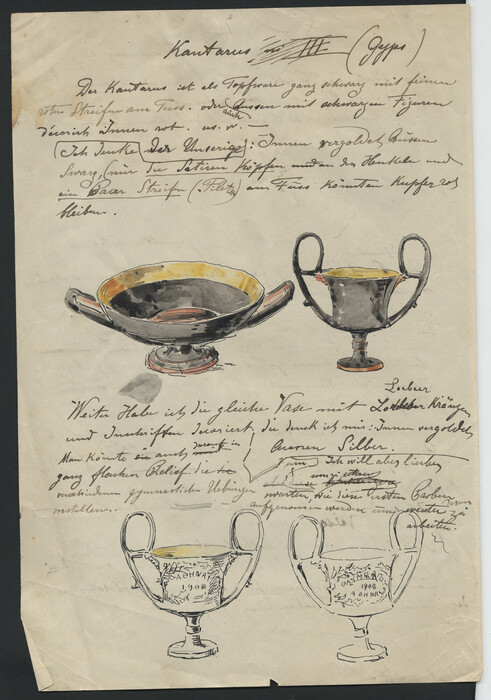 Kantarus III (Gyps)
Der Kantarus ist als Topfware ganz schwarz mit feinen
roten Streifen am Fuss. oder auch Aussen mit schwarzen Figuren
Innen rot. us. w. —
(Ich denke Der Unserige: Innen vergoldet Aussen
Swarz, (nur die Satiren Köpfen und an den Henkeln und
ein Paar Streifen (Filets) am Fuss könnten Kupfer rot
bleiben.
Lorbeer
Weiter Habe ich die gleiche Vase mit Kränzen
und Innschriften decoriert die denk ich mir: Innen vergoldet
Aussen Silber.
Man könnte auch darauf in
ganz flachen Relief die
verschiedenen gymnastischen Uebungen
vorstellen..
Ich will aber lieber
warten, wie diese ersten Proben
aufgenommen werden um weiter zu
arbeiten.
ΑΘΗΝΑΙ
1908
1908